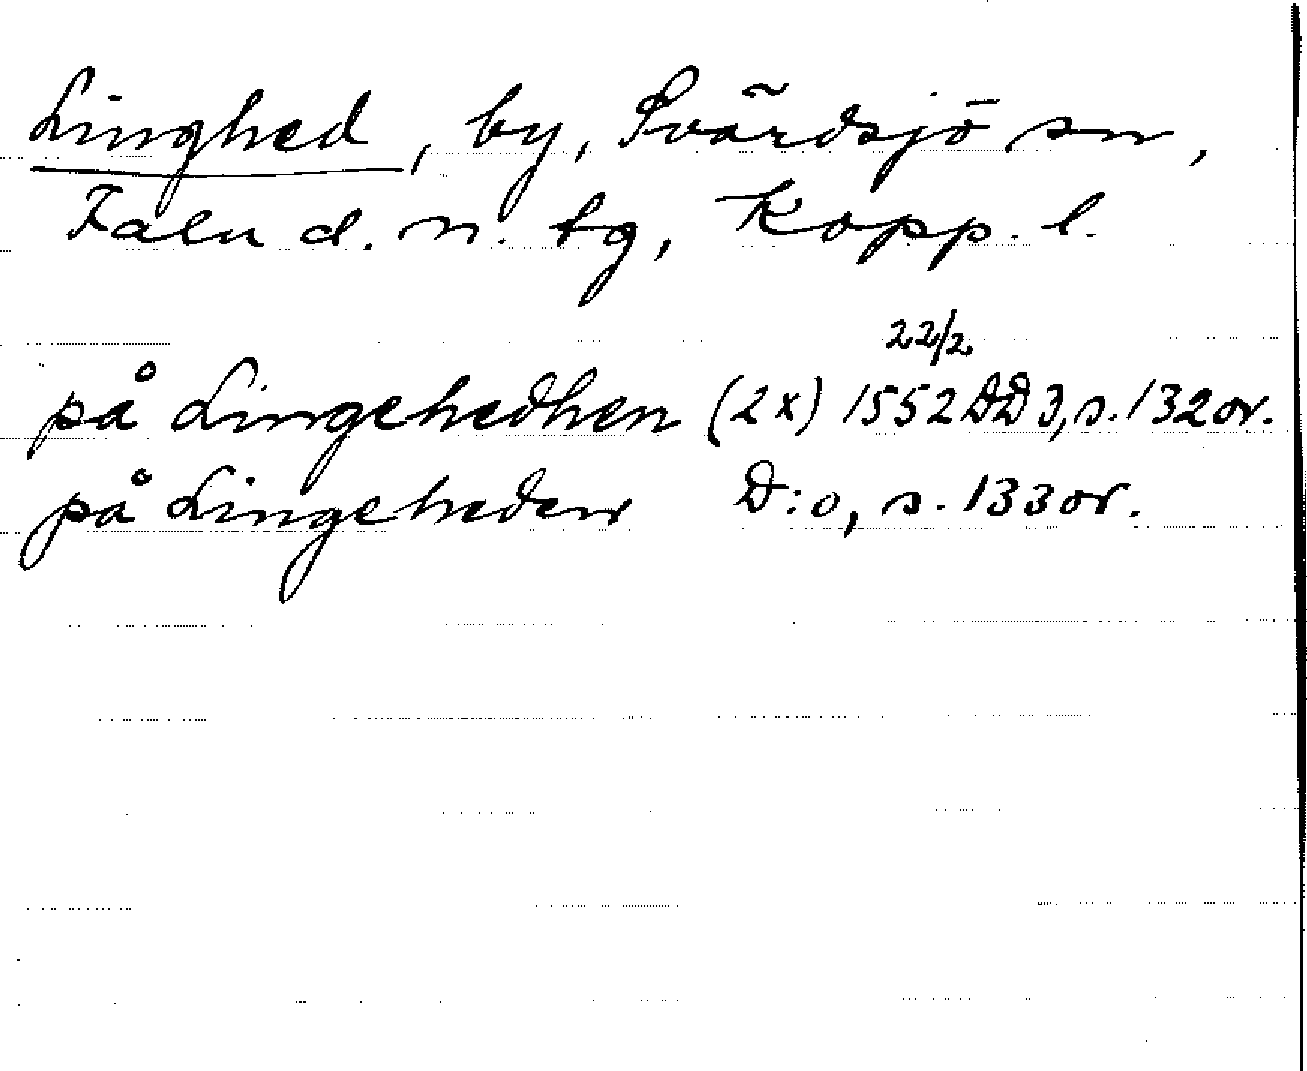 Linghed, by, Svärdsjö sn,
Falu d. n. tg, Kopp. l.
22/2
på Lingehedhen (2x) 1552 DD 3, s. 132 or.
på Lingeheden D:o, s. 133 or.